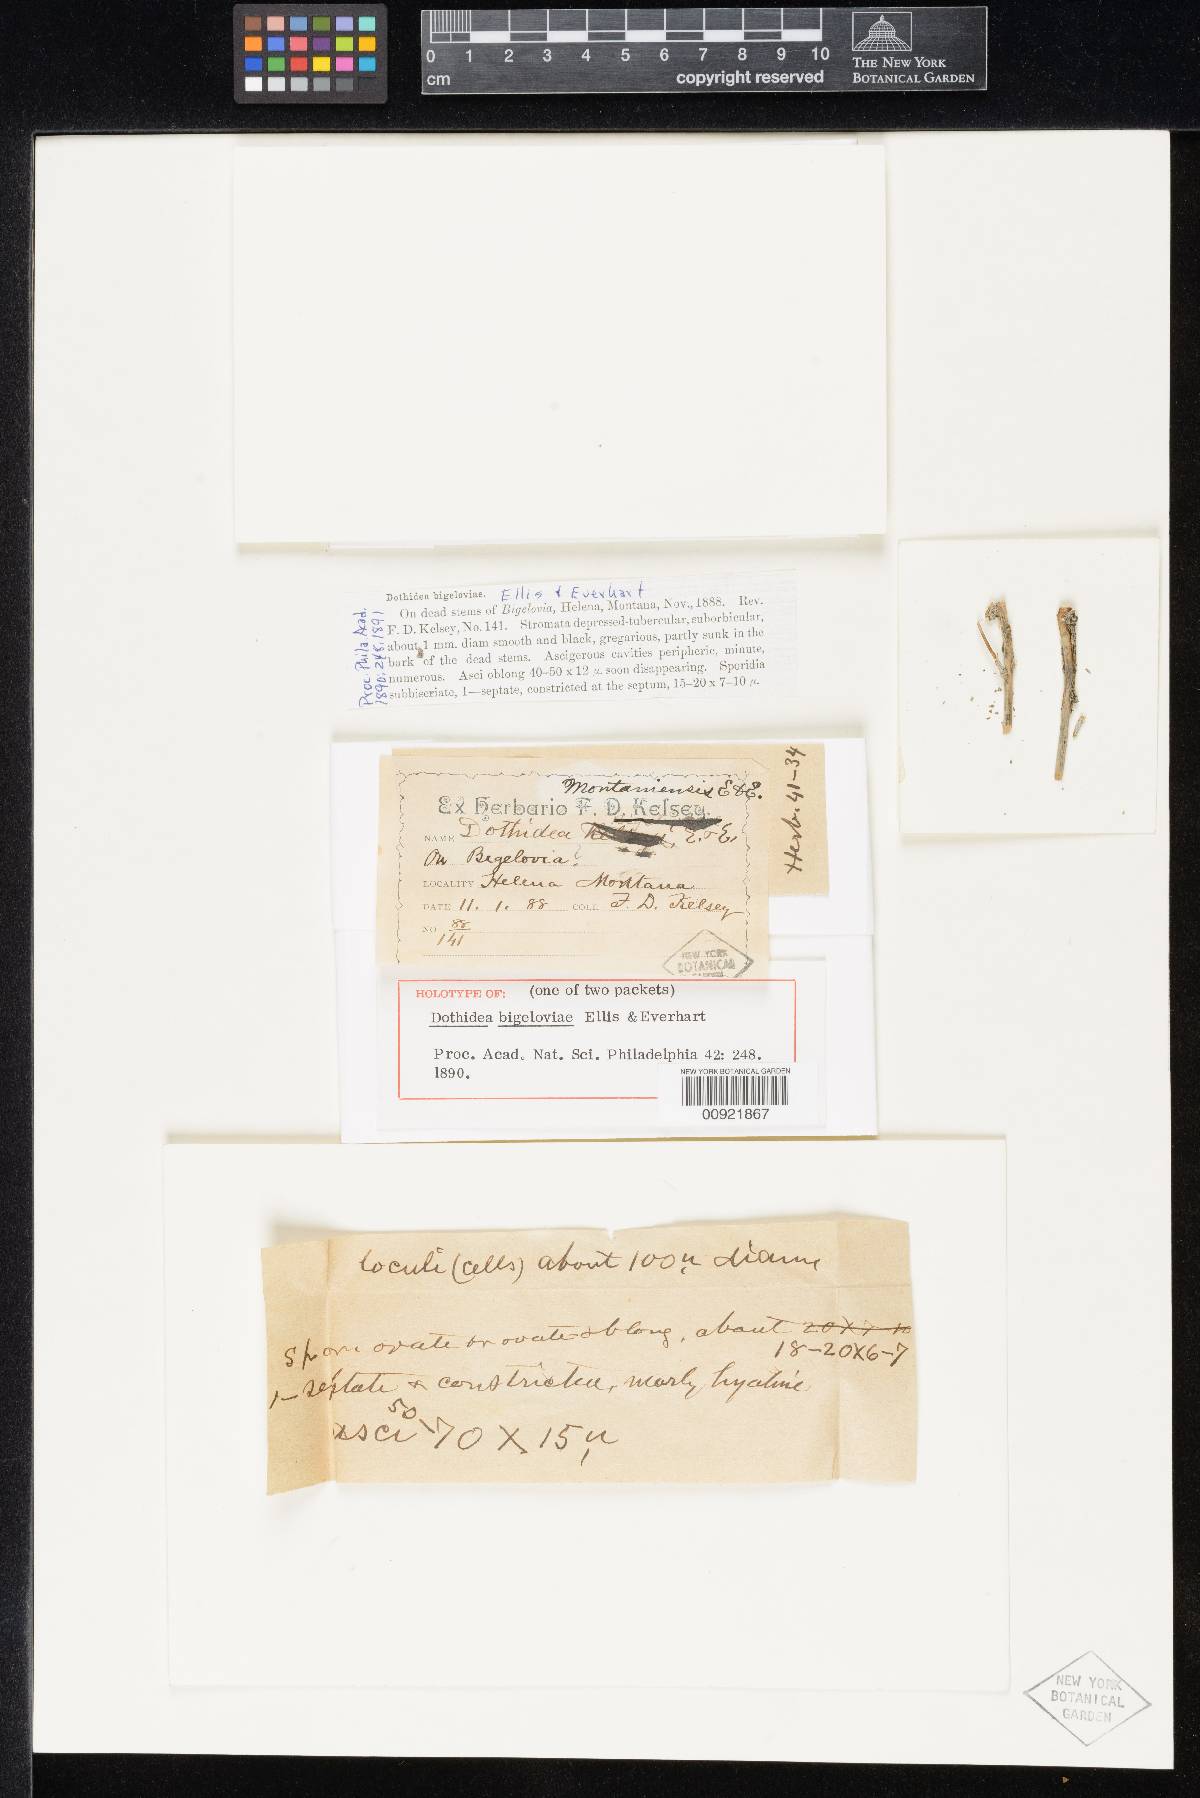 0 1 2 3 4 5 6 7 8 9 10
cm
copyright reserved
THE NEW YORK
BOTANICAL GARDEN
Dothidea bigeloviae. Ellis & Everhart
On dead stems of Bigelovia, Helena, Montana, Nov., 1888. Rev.
F. D. Kelsey, No. 141. Stromata depressed-tubercular, suborbicular,
about 1 mm. diam smooth and black, gregarious, partly sunk in the
bark of the dead stems. Ascigerous cavities peripheric, minute,
numerous. Asci oblong 40–50 x 12 µ. soon disappearing. Sporidia
subbiseriate, 1—septate, constricted at the septum, 15–20 x 7–10 µ.
Proc. Phila Acad.
1890: 248. 1891
Montaniensis E & E.
Ex Herbario F. D. Kelsey.
NAME Dothidea E. & E.
On Bigelovia?
LOCALITY Helena Montana
DATE 11. 1. 88 COLL. F. D. Kelsey
NO. 88
141
NEW YORK
BOTANICAL
GARDEN
Herb. 41-34
HOLOTYPE OF: (one of two packets)
Dothidea bigeloviae Ellis & Everhart
Proc. Acad. Nat. Sci. Philadelphia 42: 248.
1890.
NEW YORK BOTANICAL GARDEN
00921867
loculi (cells) about 100 µ diam
ovate or ovate oblong, about 20X7-10
18-20X6-7
1-septate & constricted, hyaline
asci 50-70 X 15 µ
NEW YORK
BOTANICAL
GARDEN